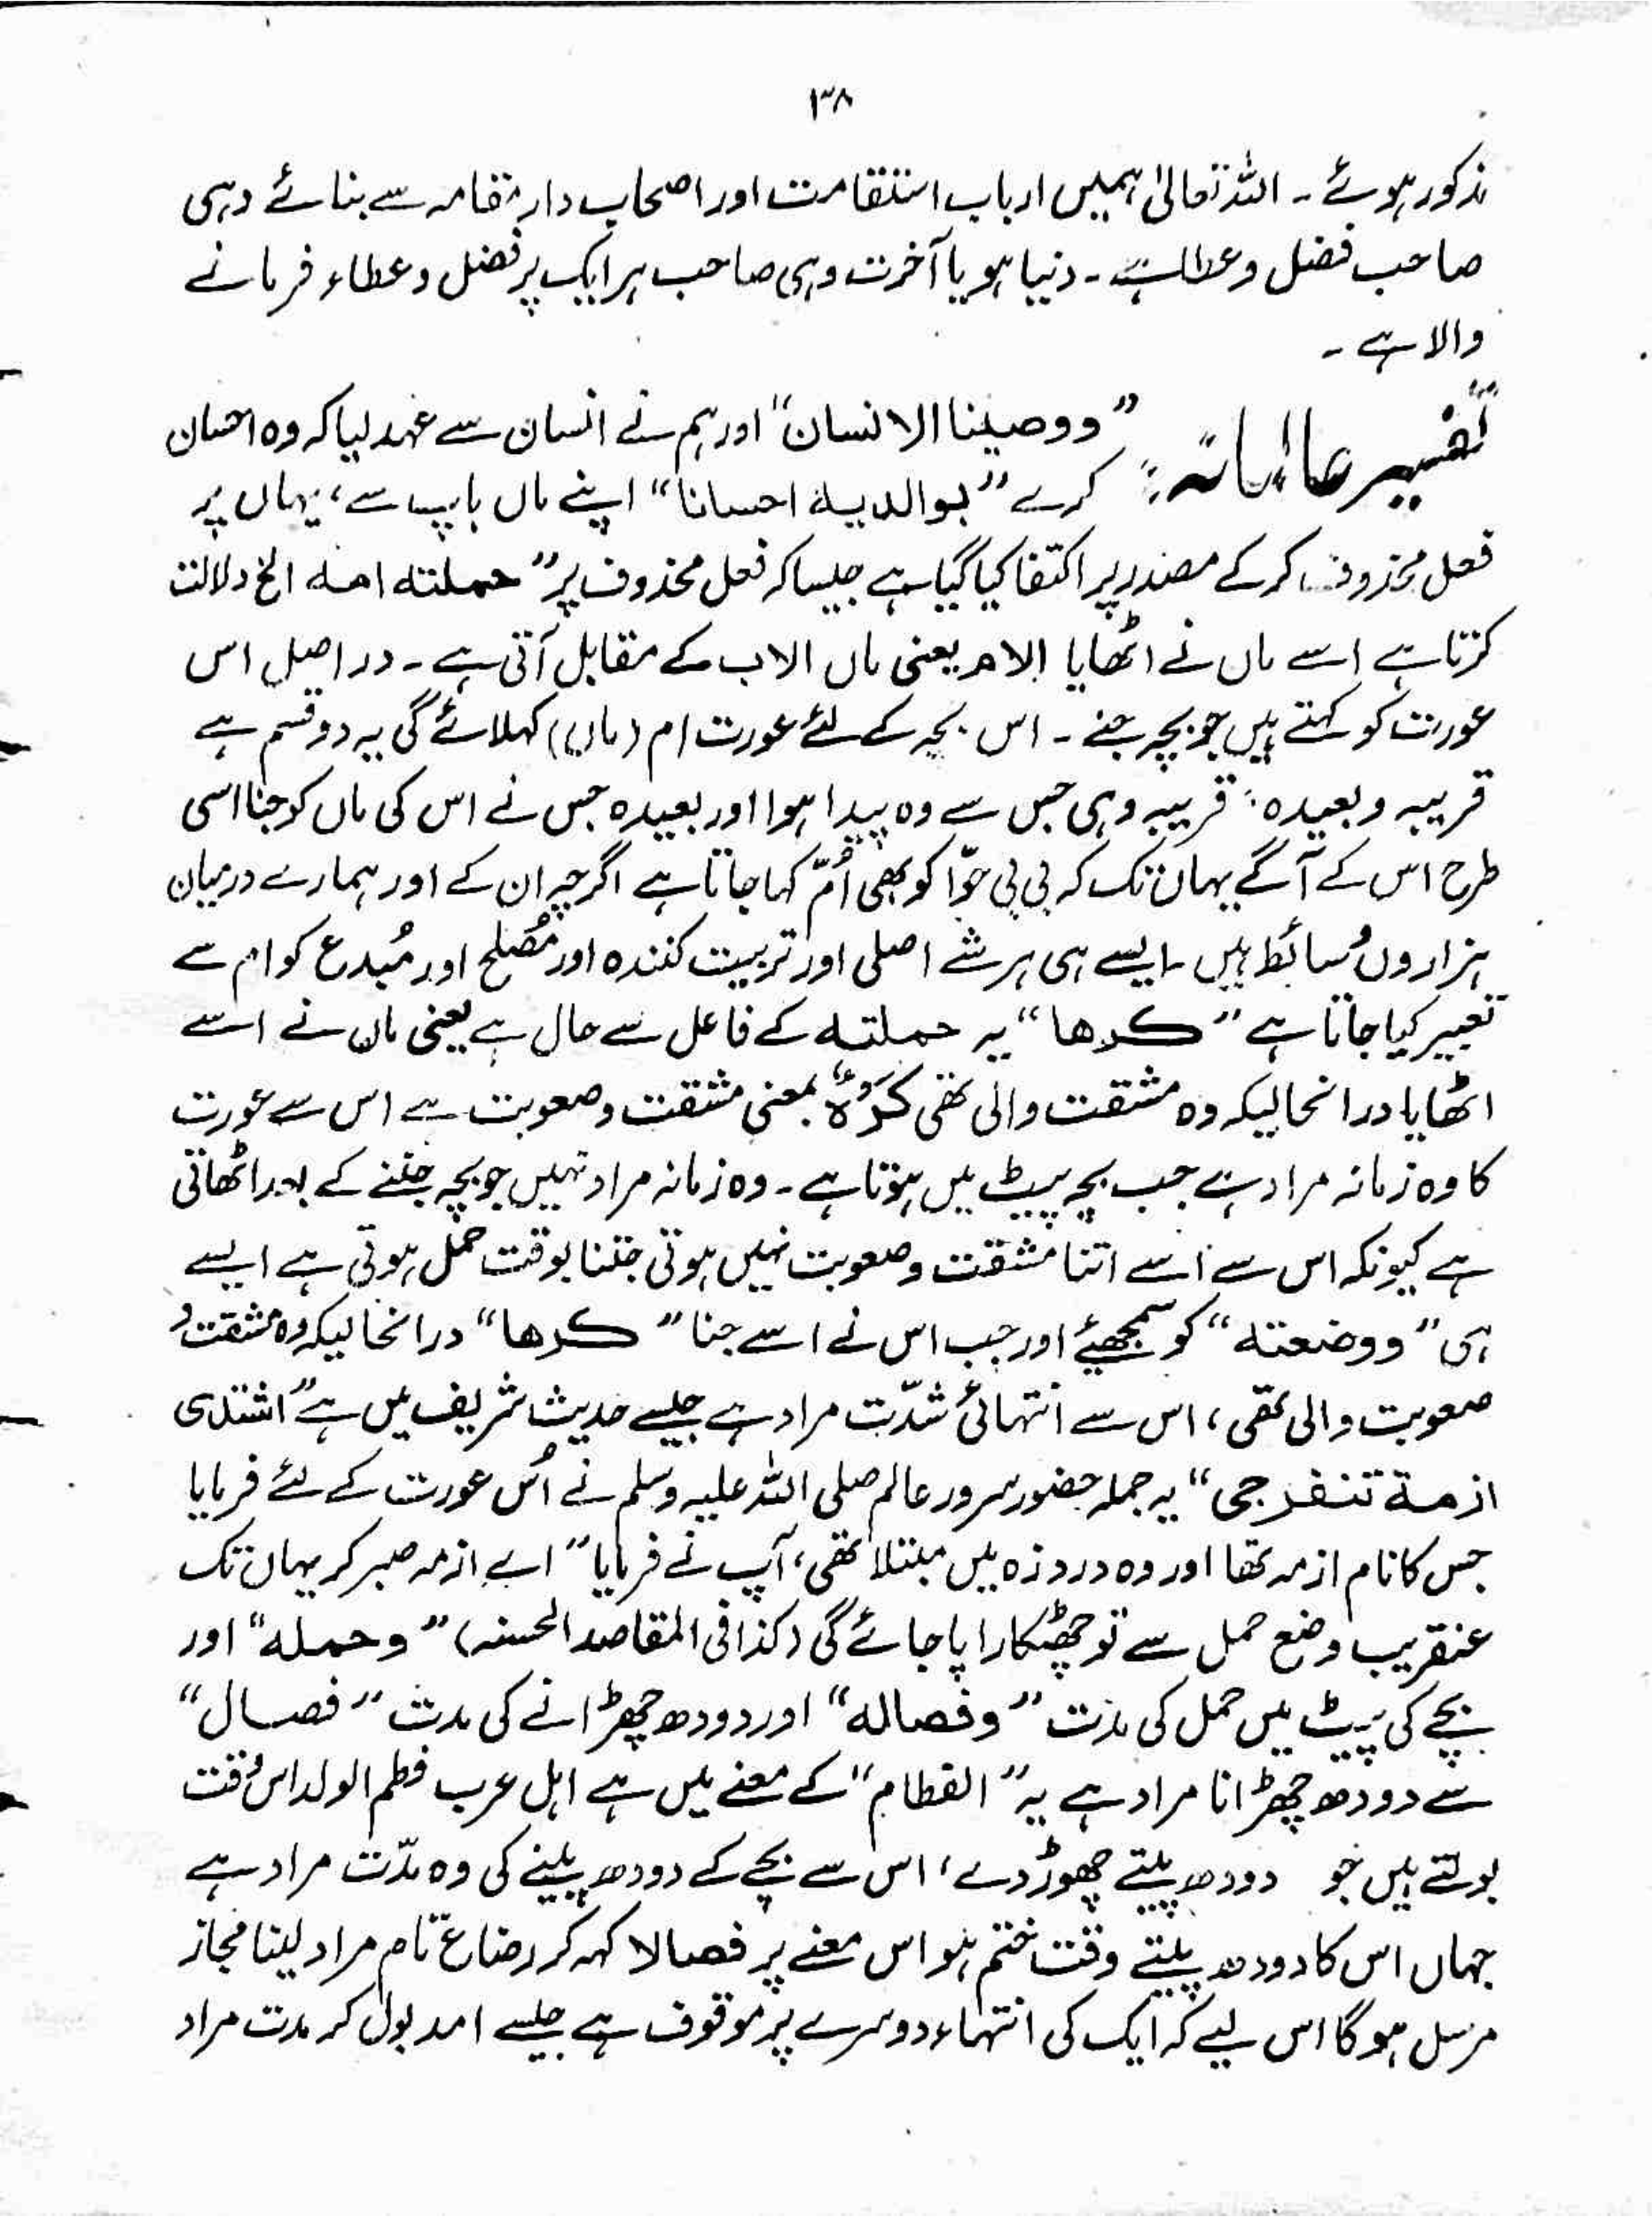 ۳۸
مذکور ہوئے ۔ اللہ تعالیٰ ہمیں ارباب استقامت اور اصحاب دار مقامہ سے بنائے وہی
صاحب فضل و عطا ہے ۔ دنیا ہو یا آخرت وہی صاحب ہر ایک پر فضل و عطاء فرمانے
والا ہے ۔
تفسیر عالمانہ : ”ووصینا الانسان“ اور ہم نے انسان سے عہد لیا کہ وہ احسان
کرے ”بوالدیہ احسانا“ اپنے ماں باپ سے ، یہاں پر
فعل محذوف کر کے مصدر پر اکتفا کیا گیا ہے جیسا کہ فعل محذوف پر ”حملته امه الخ دلالت
کرتا ہے اسے ماں نے اٹھایا الام یعنی ماں الاب کے مقابل آتی ہے ۔ در اصل اس
عورت کو کہتے ہیں جو بچہ جنے ۔ اس بچہ کے لئے عورت ام (ماں) کہلائے گی یہ دو قسم ہے
قریبہ و بعیدہ : قریبہ وہی جس سے وہ پیدا ہوا اور بعیدہ جس نے اس کی ماں کو جنا اسی
طرح اس کے آگے یہاں تک کہ بی بی حوّا کو بھی اُمّ کہا جاتا ہے اگرچہ ان کے اور ہمارے درمیان
ہزاروں وسائط ہیں ۔ ایسے ہی ہر شے اصلی اور تربیت کنندہ اور مُصلح اور مُبدع کو ام سے
تعبیر کیا جاتا ہے ”کرها“ یہ حملته کے فاعل سے حال ہے یعنی ماں نے اسے
اٹھایا درانحالیکہ وہ مشقت والی تھی کَرْہٌ بمعنی مشقت و صعوبت ہے اس سے عورت
کا وہ زمانہ مراد ہے جب بچہ پیٹ میں ہوتا ہے ۔ وہ زمانہ مراد نہیں جو بچہ جننے کے بعد اٹھاتی
ہے کیونکہ اس سے اسے اتنا مشقت و صعوبت نہیں ہوتی جتنا بوقت حمل ہوتی ہے ایسے
ہی ”ووضعته“ کو سمجھئے اور جب اس نے اسے جنا ”کرها“ درانحالیکہ وہ مشقت و
صعوبت والی تھی ، اس سے انتہائی شدّت مراد ہے جیسے حدیث شریف میں ہے ”اشتدی
ازمة تنفرجی“ یہ جملہ حضور سرور عالم صلی اللہ علیہ وسلم نے اُس عورت کے لئے فرمایا
جس کا نام ازمہ تھا اور وہ درد زہ میں مبتلا تھی ، آپ نے فرمایا ”اے ازمہ صبر کر یہاں تک
عنقریب وضع حمل سے تو چھٹکارا پا جائے گی (کذا فی المقاصد الحسنہ) ”وحمله“ اور
بچے کی پیٹ میں حمل کی مدت ”وفصاله“ اور دودھ چھڑانے کی مدت ”فصال“
سے دودھ چھڑانا مراد ہے یہ ”الفطام“ کے معنے میں ہے اہل عرب فطم الولد اس وقت
بولتے ہیں جو دودھ پیتے چھوڑ دے ، اس سے بچے کے دودھ پینے کی وہ مدّت مراد ہے
جہاں اس کا دودھ پیتے وقت ختم ہو اس معنے پر فصالا کہہ کر رضاع تام مراد لینا مجاز
مرسل ہو گا اس لیے کہ ایک کی انتہاء دوسرے پر موقوف ہے جیسے امد بول کر مدت مراد